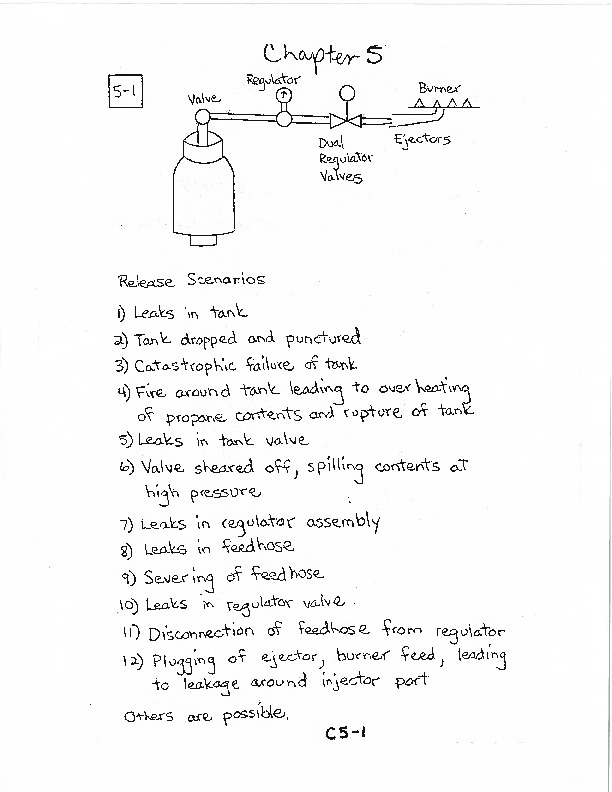 Chapter 5
5-1
Regulator
Burner
Valve
Dual
Regulator
Valves
Ejectors
Release Scenarios
1) Leaks in tank
2) Tank dropped and punctured
3) Catastrophic failure of tank
4) Fire around tank leading to overheating
of propane contents and rupture of tank
5) Leaks in tank valve
6) Valve sheared off, spilling contents at
high pressure
7) Leaks in regulator assembly
8) Leaks in feedhose
9) Severing of feedhose
10) Leaks in regulator valve.
11) Disconnection of feedhose from regulator
12) Plugging of ejector, burner feed, leading
to leakage around injector port
Others are possible.
C5-1